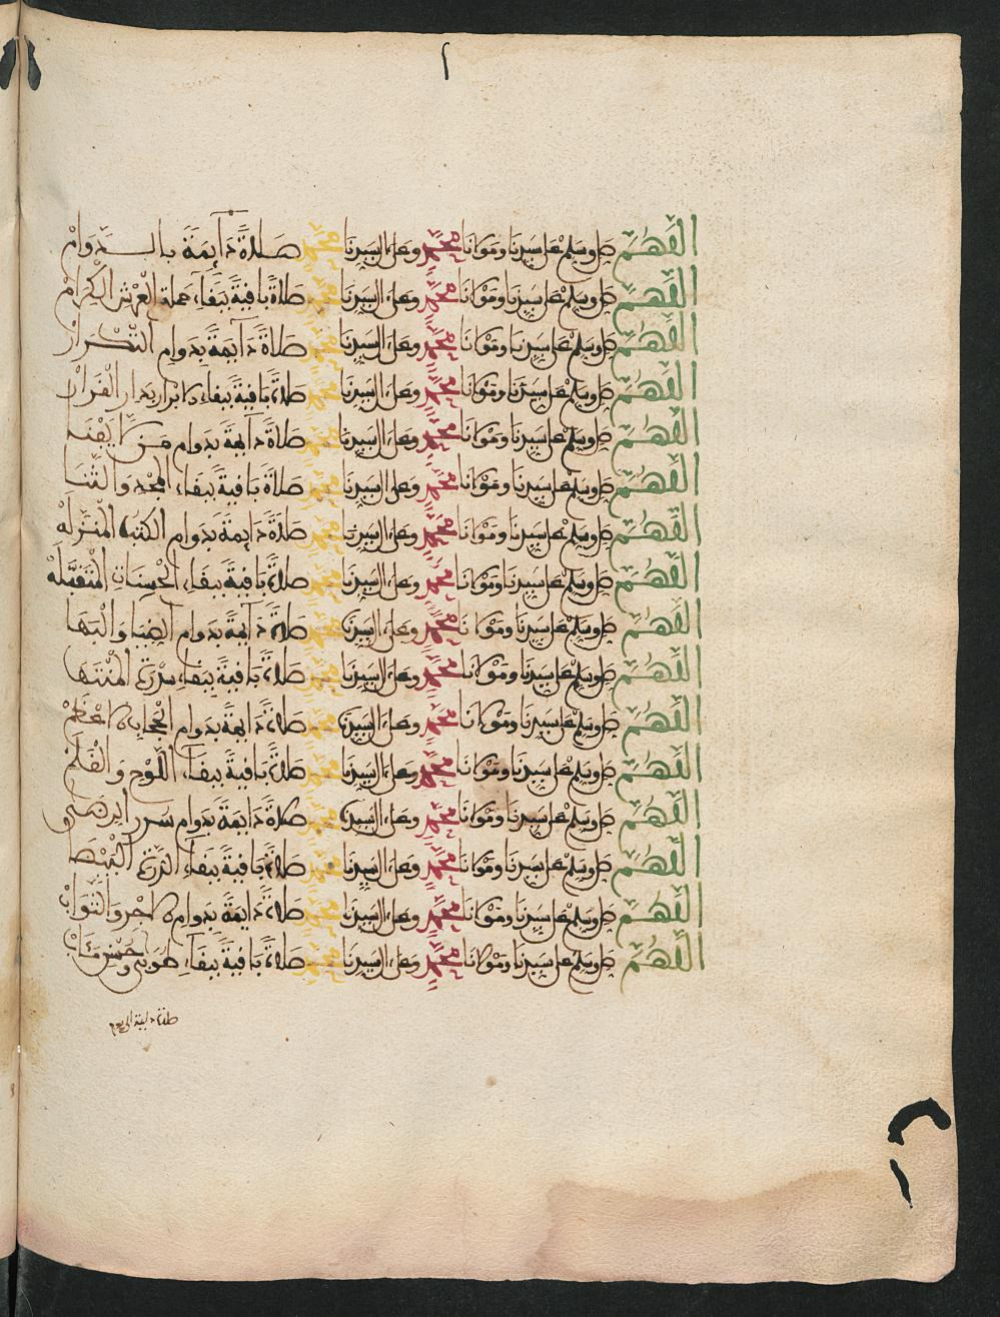 اللهم صل وسلم على سيدنا ومولانا محمد وعلى ءال سيدنا محمد صلاة دآيمة بالدوام
اللهم صل وسلم على سيدنا ومولانا محمد وعلى ءال سيدنا محمد صلاة باقية ببقآء حملة العرش الكرام
اللهم صل وسلم على سيدنا ومولانا محمد وعلى ءال سيدنا محمد صلاة دآيمة بدوام التكرار
اللهم صل وسلم على سيدنا ومولانا محمد وعلى ءال سيدنا محمد صلاة باقية ببقآء الابرار بدار القرار
اللهم صل وسلم على سيدنا ومولانا محمد وعلى ءال سيدنا محمد صلاة دآيمة بدوام من لا يفنى
اللهم صل وسلم على سيدنا ومولانا محمد وعلى ءال سيدنا محمد صلاة باقية ببقآء المجد والثنا
اللهم صل وسلم على سيدنا ومولانا محمد وعلى ءال سيدنا محمد صلاة دآيمة بدوام الكتب المنزله
اللهم صل وسلم على سيدنا ومولانا محمد وعلى ءال سيدنا محمد صلاة باقية ببقآء الحسنات المتقبله
اللهم صل وسلم على سيدنا ومولانا محمد وعلى ءال سيدنا محمد صلاة دآيمة بدوام الضيا والبها
اللهم صل وسلم على سيدنا ومولانا محمد وعلى ءال سيدنا محمد صلاة باقية ببقآء سدرة المنتها
اللهم صل وسلم على سيدنا ومولانا محمد وعلى ءال سيدنا محمد صلاة دآيمة بدوام الحجاب الاعظم
اللهم صل وسلم على سيدنا ومولانا محمد وعلى ءال سيدنا محمد صلاة باقية ببقآء اللوح والقلم
اللهم صل وسلم على سيدنا ومولانا محمد وعلى ءال سيدنا محمد صلاة دآيمة بدوام
اللهم صل وسلم على سيدنا ومولانا محمد وعلى ءال سيدنا محمد صلاة باقية ببقآء الدرة البيضا
اللهم صل وسلم على سيدنا ومولانا محمد وعلى ءال سيدنا محمد صلاة دآيمة بدوام الاجر والثواب
اللهم صل وسلم على سيدنا ومولانا محمد وعلى ءال سيدنا محمد صلاة باقية ببقآء طوبى وحسن مئاب
صلاة دايمة الى يوم